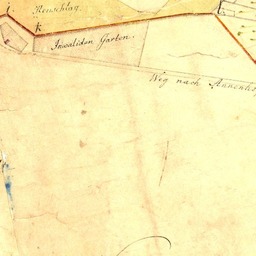 i. Heuschlag.
k
Invaliden Garten.
Weg nach Annenhof